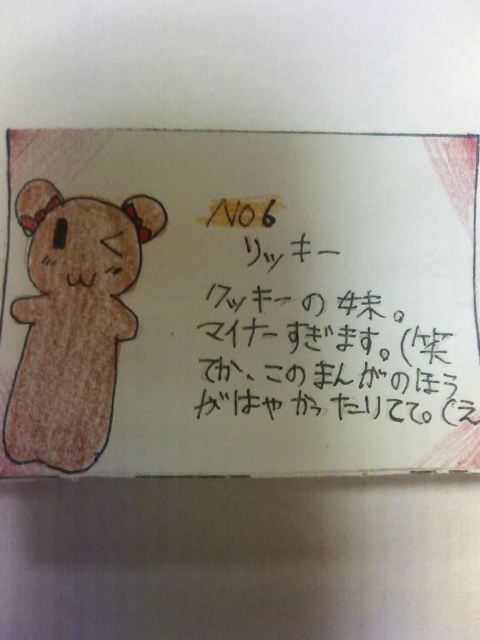 NO6
リッキー
クッキーの妹。
マイナーすぎます。(笑
てか、このまんがのほう
がはやかったりてて。(え